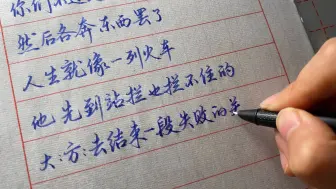 你们不过
然后各奔东西罢了
人生就像一列火车
他先到站拦也拦不住的
大方去结束一段失败的